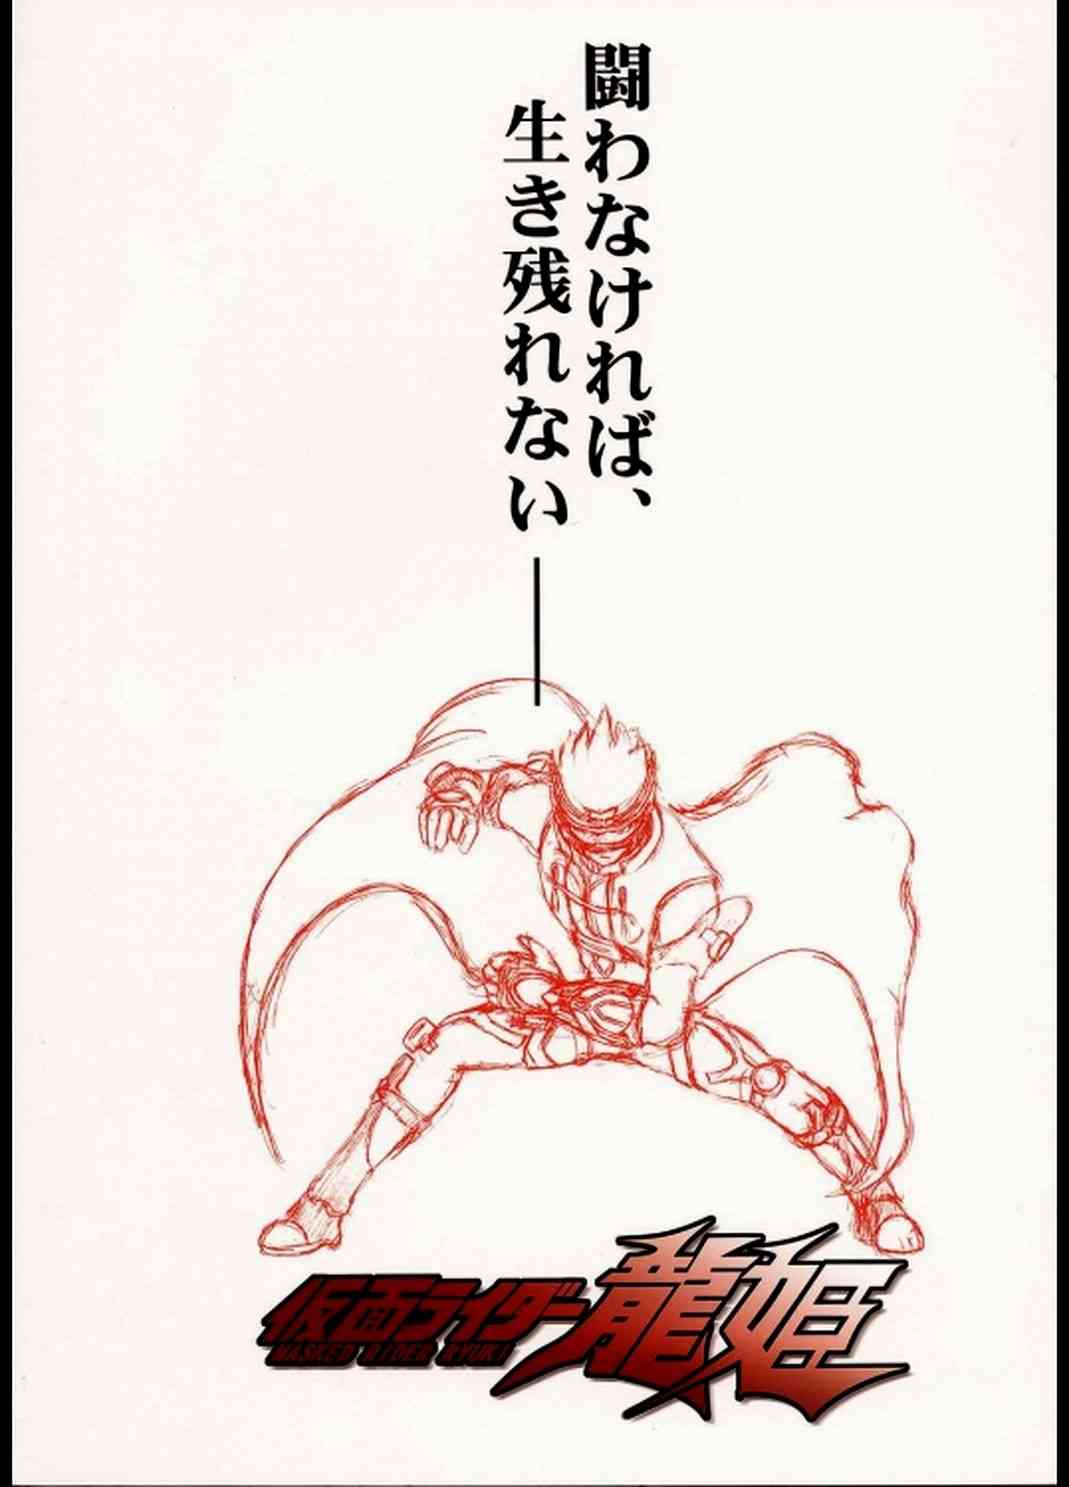 闘わなければ、
生き残れない──
仮面ライダー龍姫
MASKED RIDER RYUKI